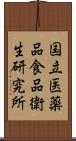 国立医薬
品食品衛
生研究所